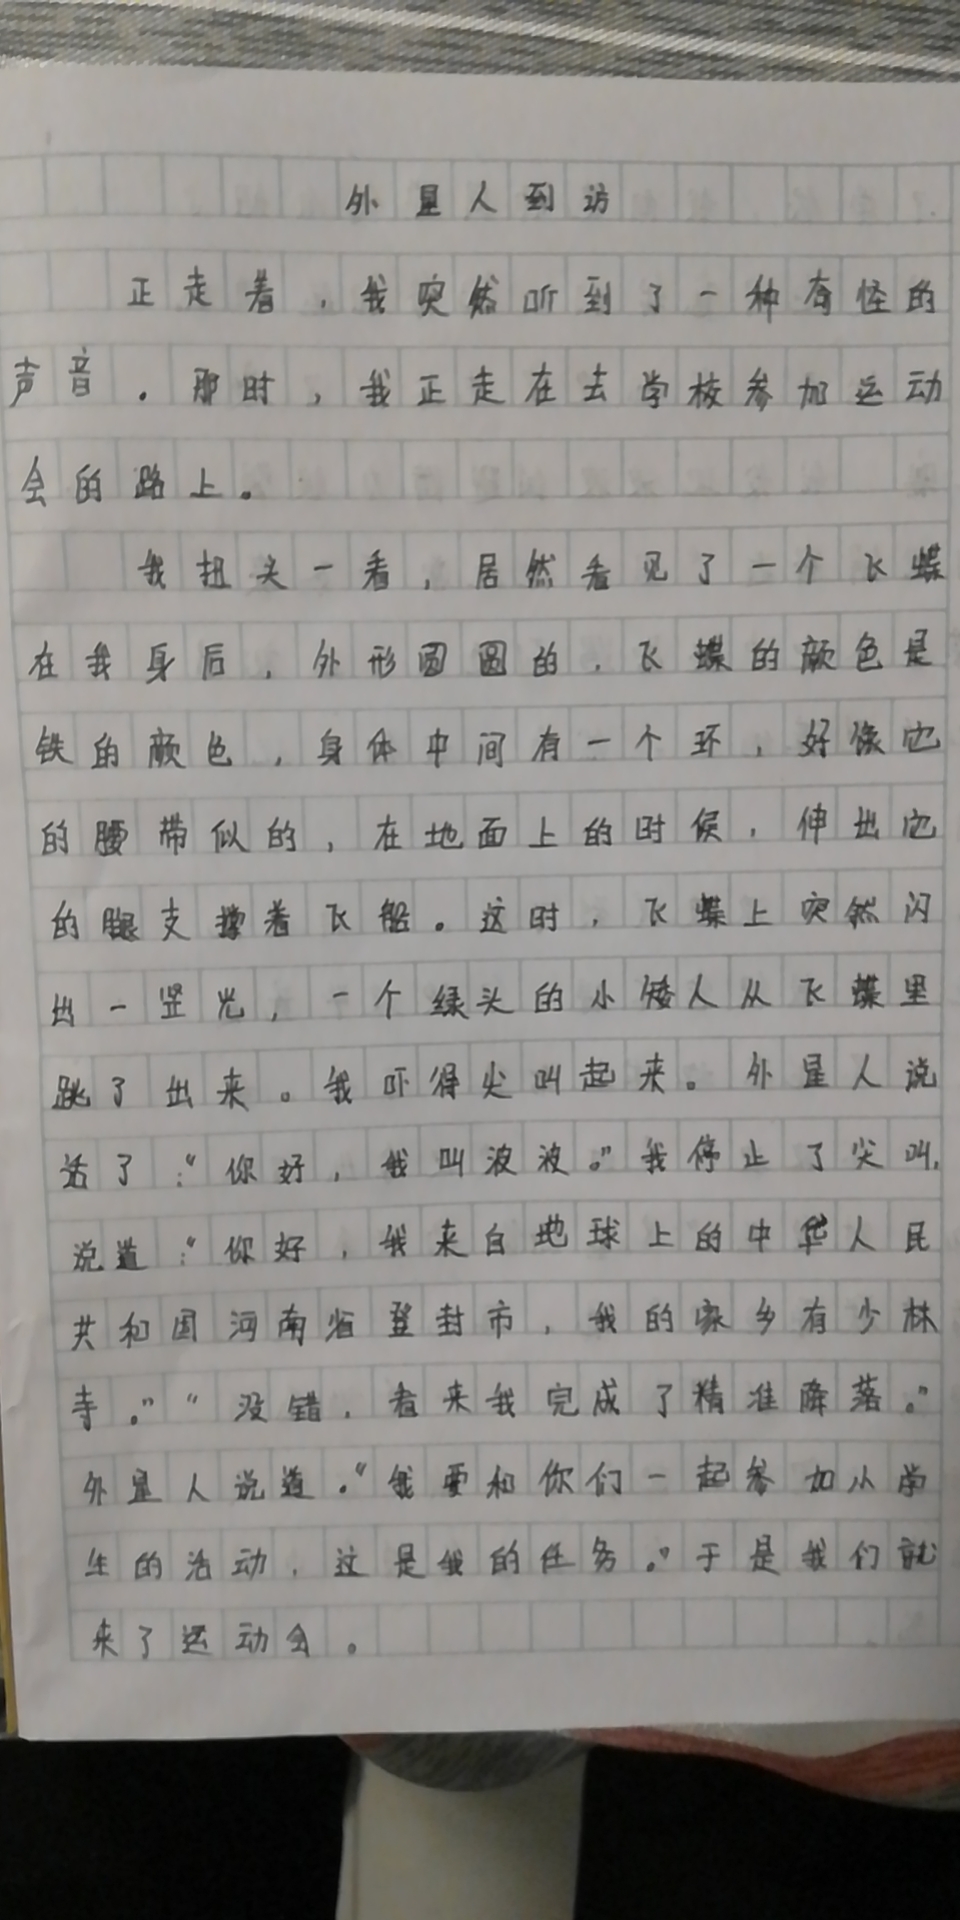 外星人到访
正走着，我突然听到了一种奇怪的
声音。那时，我正走在去学校参加运动
会的路上。
我扭头一看，居然看见了一个飞蝶
在我身后，外形圆圆的，飞蝶的颜色是
铁的颜色，身体中间有一个环，好像它
的腰带似的，在地面上的时候，伸出它
的腿支撑着飞船。这时，飞蝶上突然闪
出一竖光，一个绿头的小矮人从飞蝶里
跳了出来。我吓得尖叫起来。外星人说
话了：“你好，我叫波波。”我停止了尖叫，
说道：“你好，我来自地球上的中华人民
共和国河南省登封市，我的家乡有少林
寺。”“没错，看来我完成了精准降落。”
外星人说道。“我要和你们一起参加小学
生的活动，这是我的任务。”于是我们就
来了运动会。